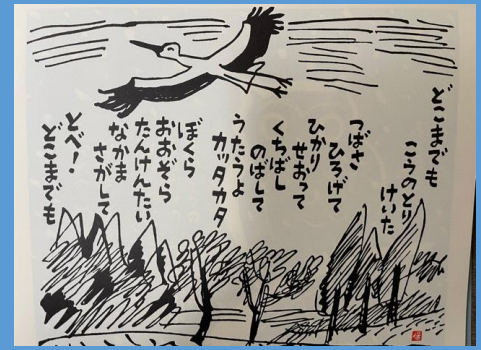 どこまでも
こうのとり
けいた
つばさ
ひろげて
ひかり
せおって
くちばし
のばして
うたうよ
カッタカタ
ぼくら
おおぞら
たんけんたい
なかま
さがして
とべ！
どこまでも